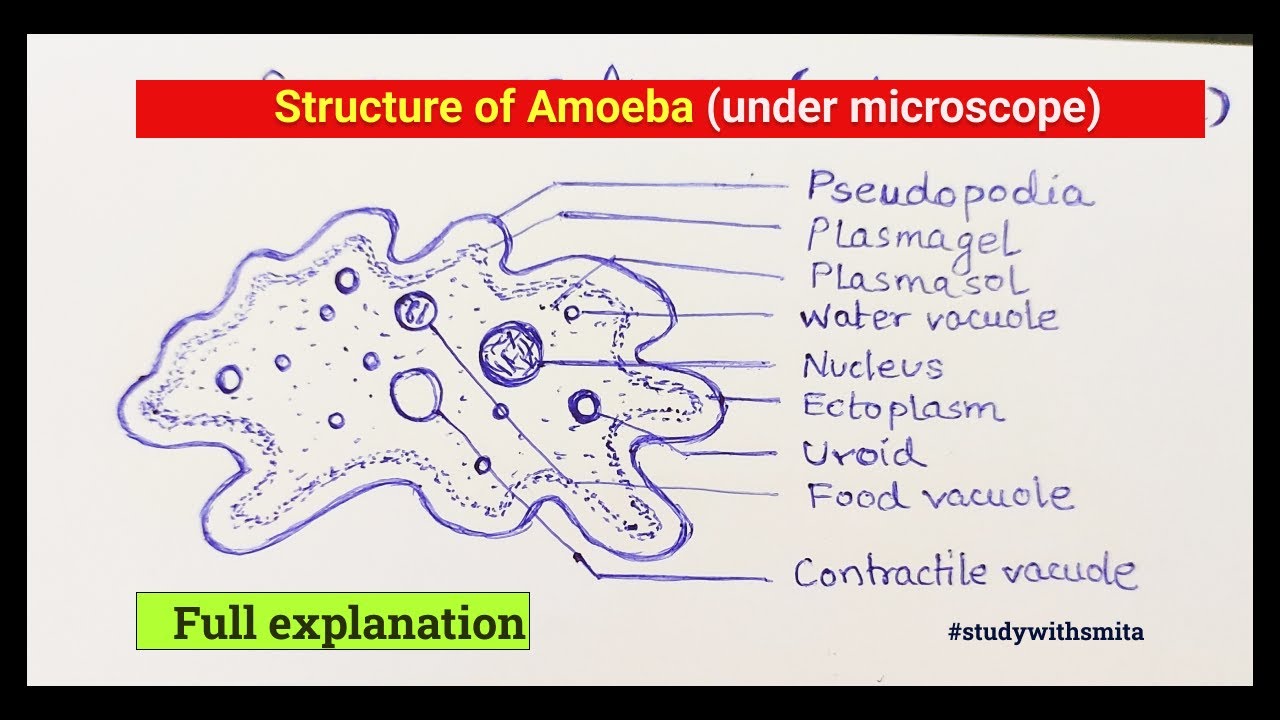 Structure of Amoeba (under microscope)
Pseudopodia
Plasmagel
Plasmasol
Water vacuole
Nucleus
Ectoplasm
Uroid
Food vacuole
Contractile vacuole
Full explanation
#studywithsmita